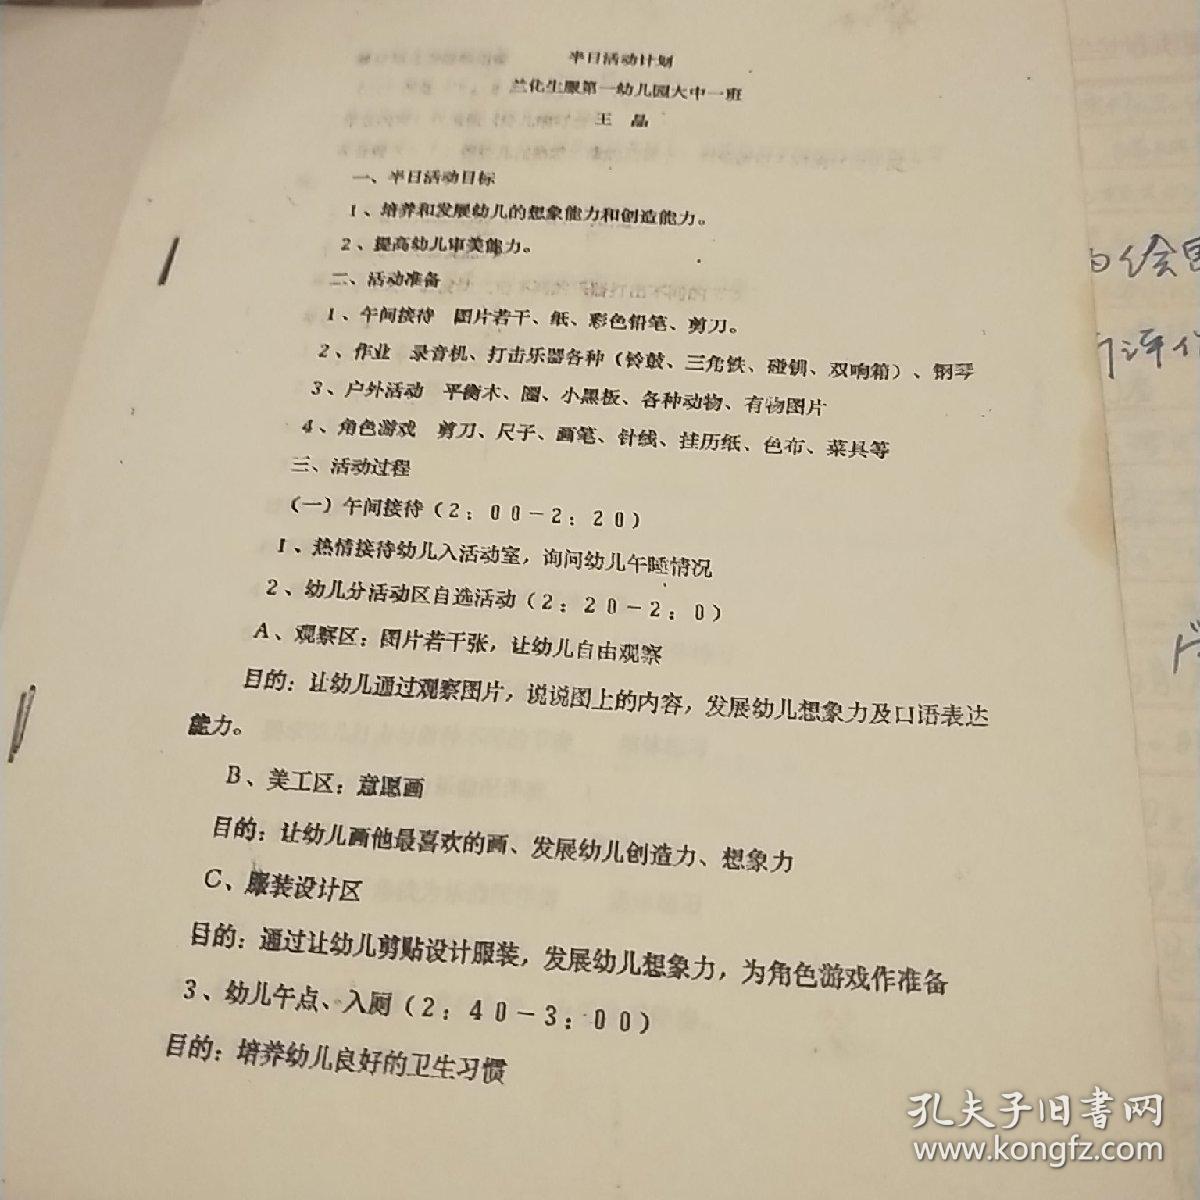 半日活动计划
兰化生服第一幼儿园大中一班
王 晶
一、半日活动目标
1、培养和发展幼儿的想象能力和创造能力。
2、提高幼儿审美能力。
二、活动准备
1、午间接待 图片若干、纸、彩色铅笔、剪刀。
2、作业 录音机、打击乐器各种（铃鼓、三角铁、碰钥、双响箱）、钢琴
3、户外活动 平衡木、圈、小黑板、各种动物、有物图片
4、角色游戏 剪刀、尺子、画笔、针线、挂历纸、色布、菜具等
三、活动过程
（一）午间接待（2：00－2：20）
1、热情接待幼儿入活动室，询问幼儿午睡情况
2、幼儿分活动区自选活动（2：20－2：0）
A、观察区：图片若干张，让幼儿自由观察
目的：让幼儿通过观察图片，说说图上的内容，发展幼儿想象力及口语表达
能力。
B、美工区：意愿画
目的：让幼儿画他最喜欢的画、发展幼儿创造力、想象力
C、服装设计区
目的：通过让幼儿剪贴设计服装，发展幼儿想象力，为角色游戏作准备
3、幼儿午点、入厕（2：40－3：00）
目的：培养幼儿良好的卫生习惯
孔夫子旧书网
www.kongfz.com